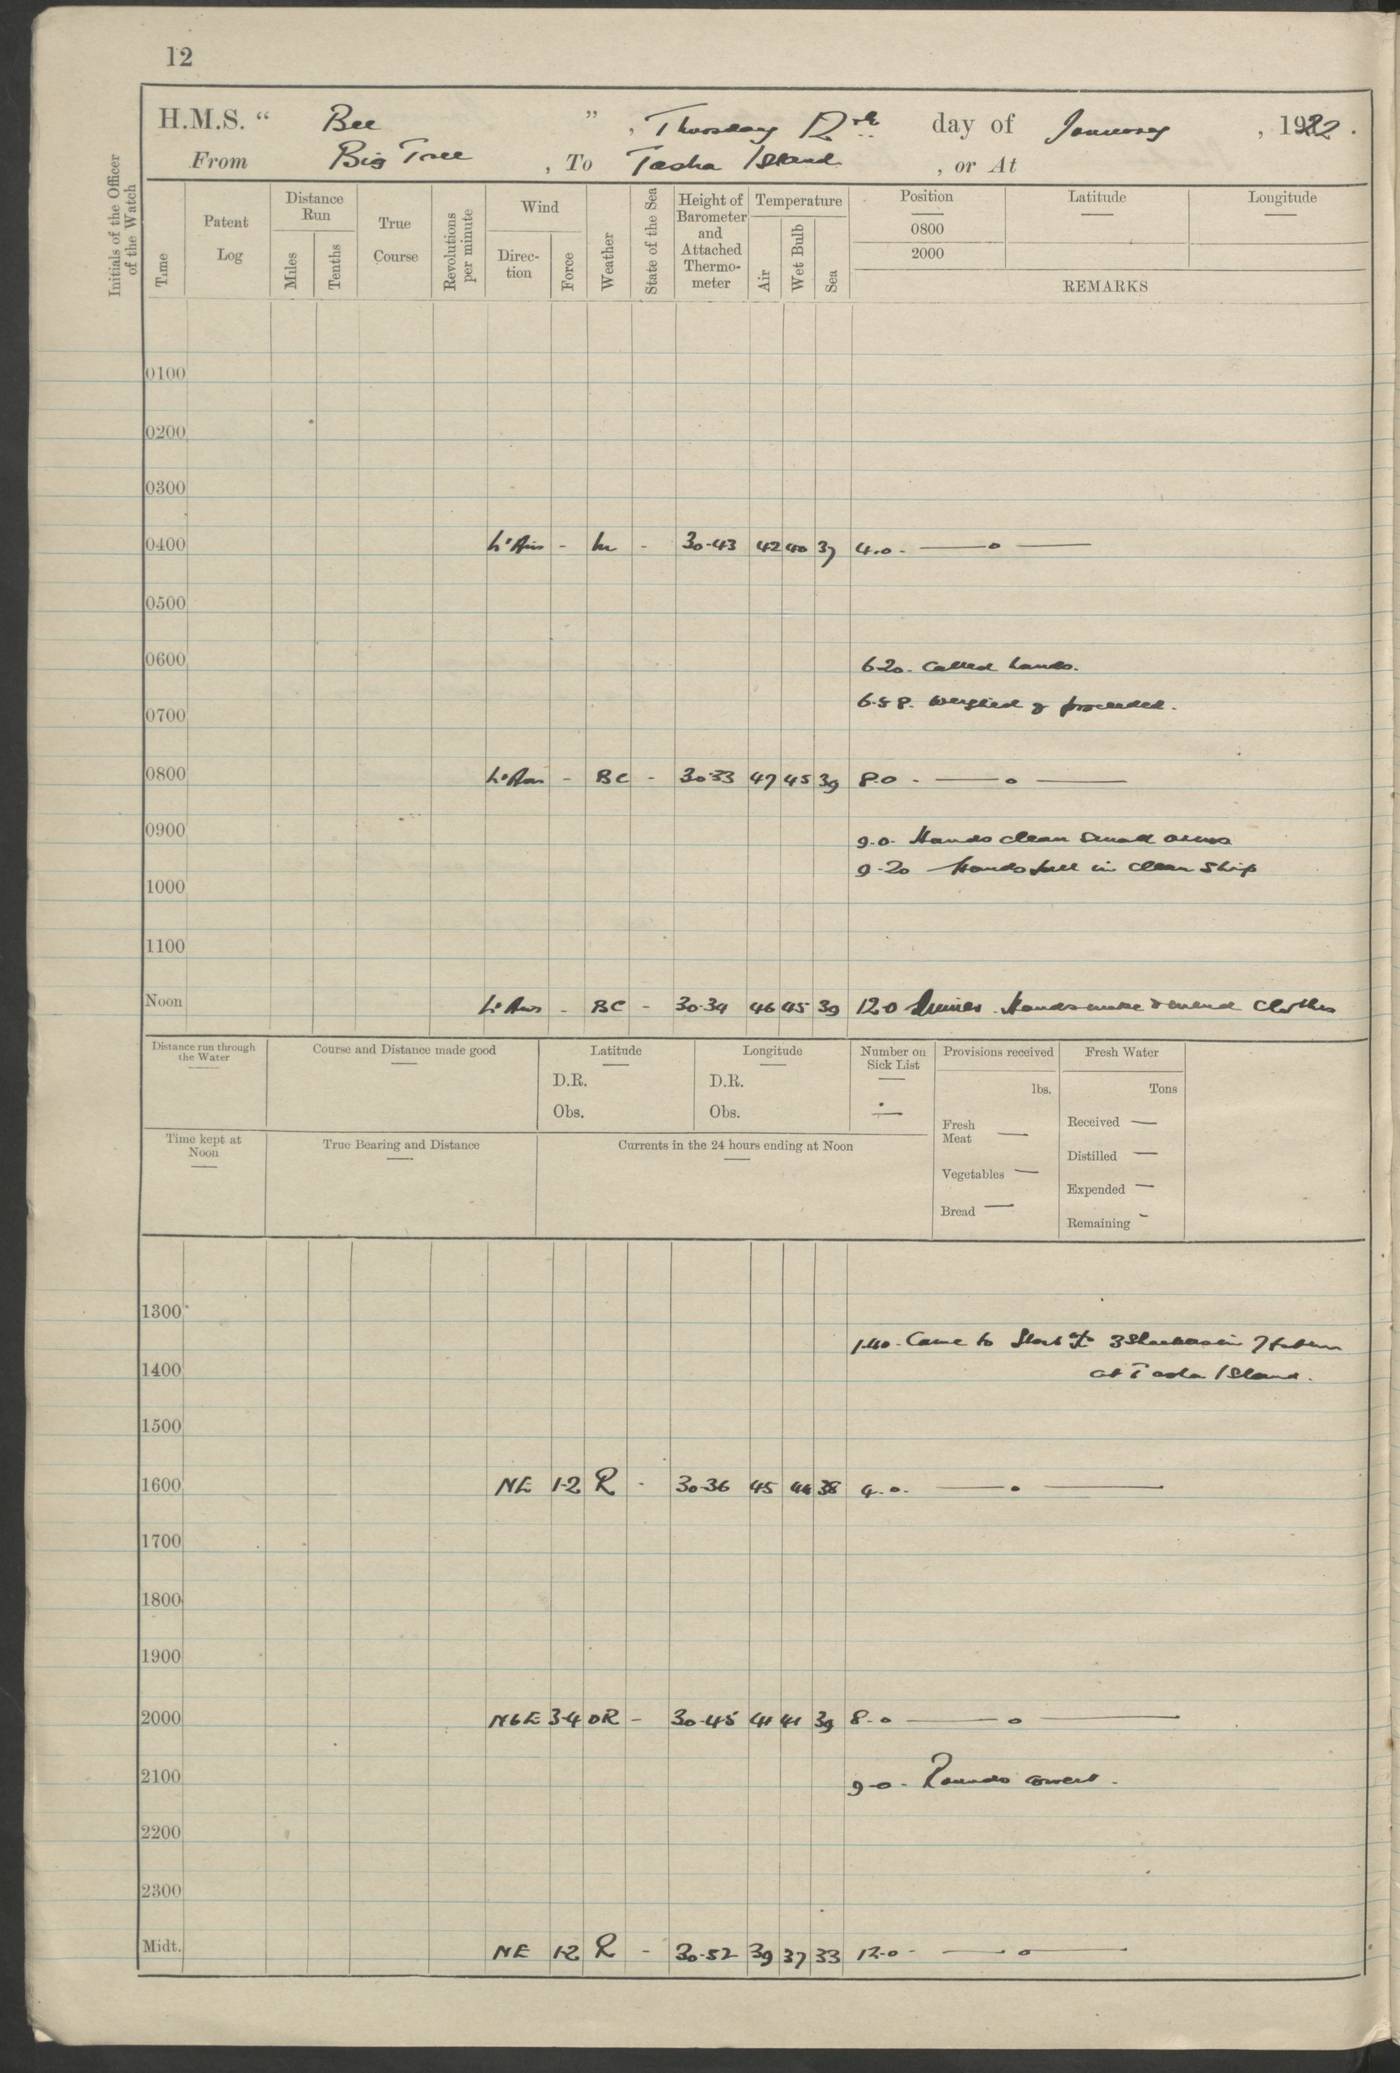 12
H.M.S. " Bee ", Thursday 12th day of January, 1922.
From Big Tree, To Tasha Island, or At
Initials of the Officer of the Watch
Time
Patent Log
Distance Run
Miles
Tenths
True Course
Revolutions per minute
Wind
Direction
Force
Weather
State of the Sea
Height of Barometer and Attached Thermometer
Temperature
Air
Wet Bulb
Sea
Position
0800
2000
Latitude
Longitude
REMARKS
0100
0200
0300
0400 Lt Airs - - 30.43 42 40 37 4.0 - — o —
0500
0600 6.20. Called hands.
6.58. Weighed & proceeded.
0700
0800 Lt Airs - BC - 30.33 47 45 39 8.0 - — o —
0900 9.0. Hands clean small arms
9.20 Hands fall in clean ship
1000
1100
Noon Lt Airs - BC - 30.34 46 45 39 12.0 Hands make & mend clothes
Distance run through the Water
Course and Distance made good
Latitude
D.R.
Obs.
Longitude
D.R.
Obs.
Number on Sick List
Provisions received
lbs.
Fresh Meat —
Vegetables —
Bread —
Fresh Water
Tons
Received —
Distilled —
Expended —
Remaining -
Time kept at Noon
True Bearing and Distance
Currents in the 24 hours ending at Noon
1300
1.40. Came to Starbd 3 Shackles in 7 fathom
at Tasha Island.
1400
1500
1600 NE 1-2 R - 30.36 45 44 38 4.0. — o —
1700
1800
1900
2000 NbE 3-4 OR - 30.45 41 41 39 8.0 — o —
2100 9.0. Rounds correct.
2200
2300
Midt. NE 1-2 R - 30.52 39 37 33 12.0 - — o —